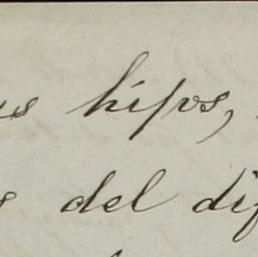 us hijos,
s del dif